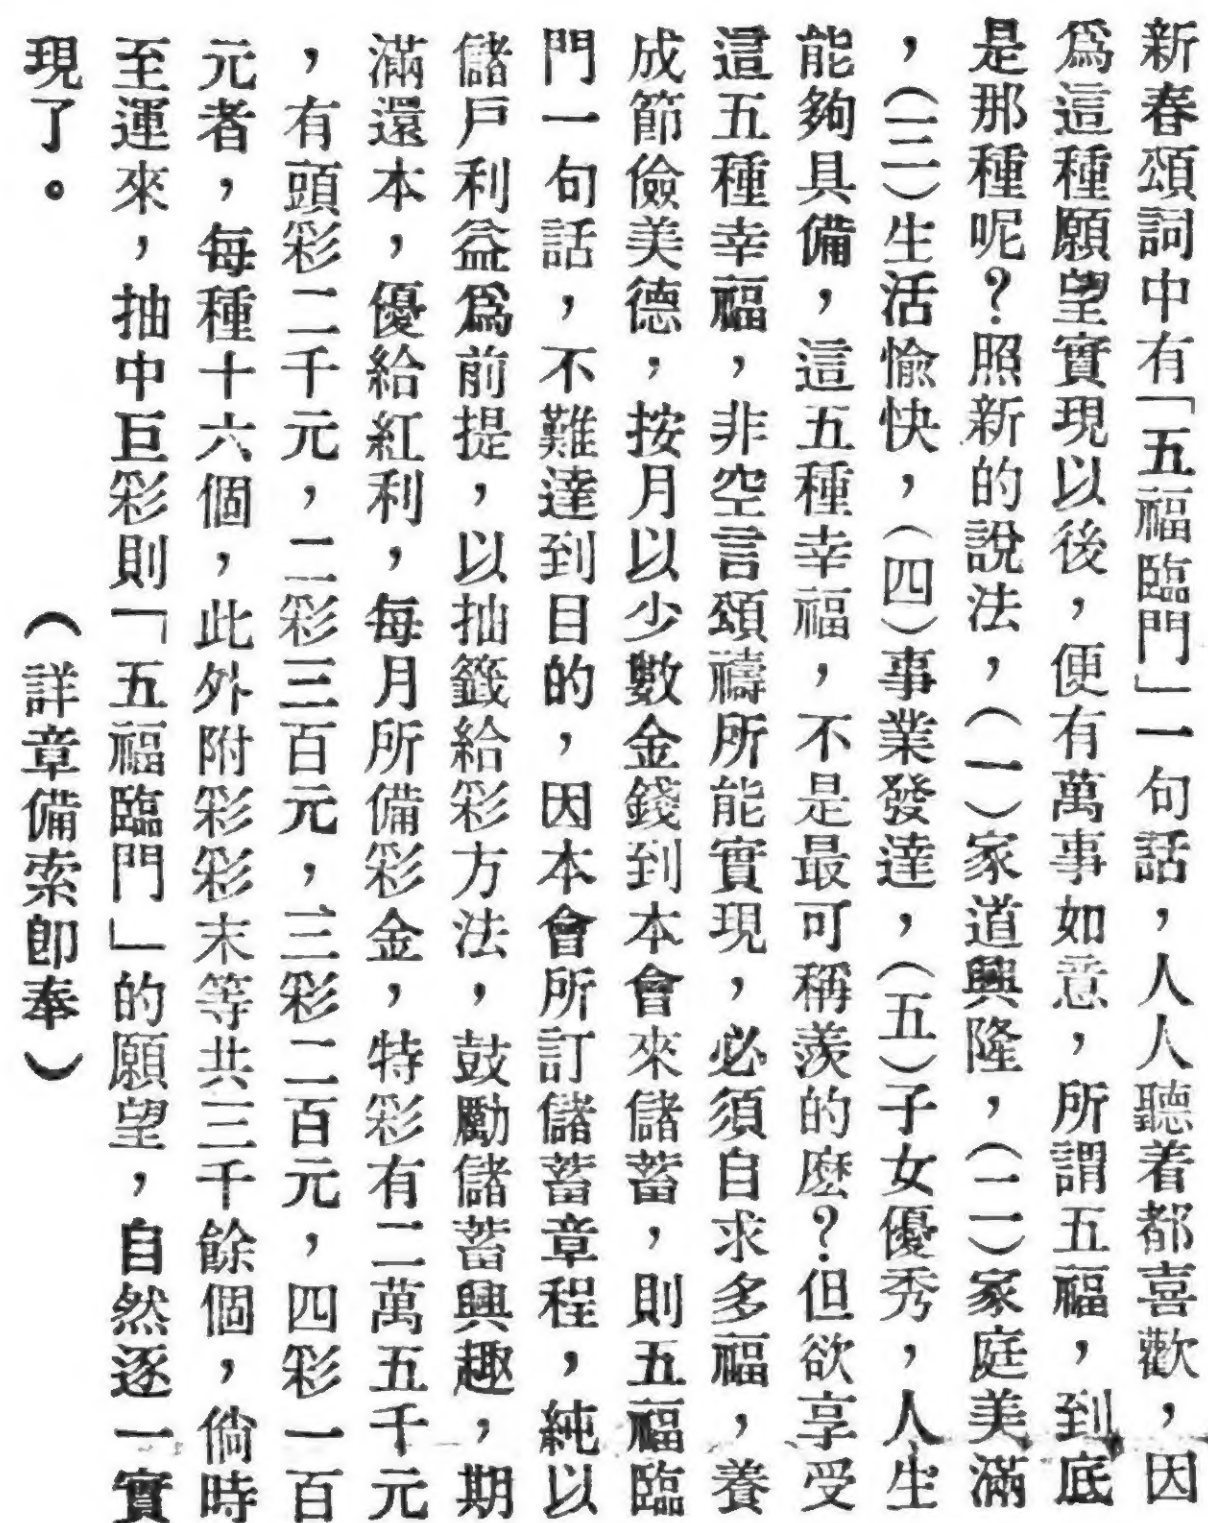 新春頌詞中有「五福臨門」一句話，人人聽着都喜歡，因
爲這種願望實現以後，便有萬事如意，所謂五福，到底
是那種呢？照新的說法，（一）家道興隆，（二）家庭美滿
，（三）生活愉快，（四）事業發達，（五）子女優秀，人生
能夠具備，這五種幸福，不是最可稱羨的麽？但欲享受
這五種幸福，非空言頌禱所能實現，必須自求多福，養
成節儉美德，按月以少數金錢到本會來儲蓄，則五福臨
門一句話，不難達到目的，因本會所訂儲蓄章程，純以
儲戶利益爲前提，以抽籤給彩方法，鼓勵儲蓄興趣，期
滿還本，優給紅利，每月所備彩金，特彩有二萬五千元
，有頭彩二千元，二彩三百元，三彩二百元，四彩一百
元者，每種十六個，此外附彩彩末等共三千餘個，倘時
至運來，抽中巨彩則「五福臨門」的願望，自然逐一實
現了。
（詳章備索卽奉）